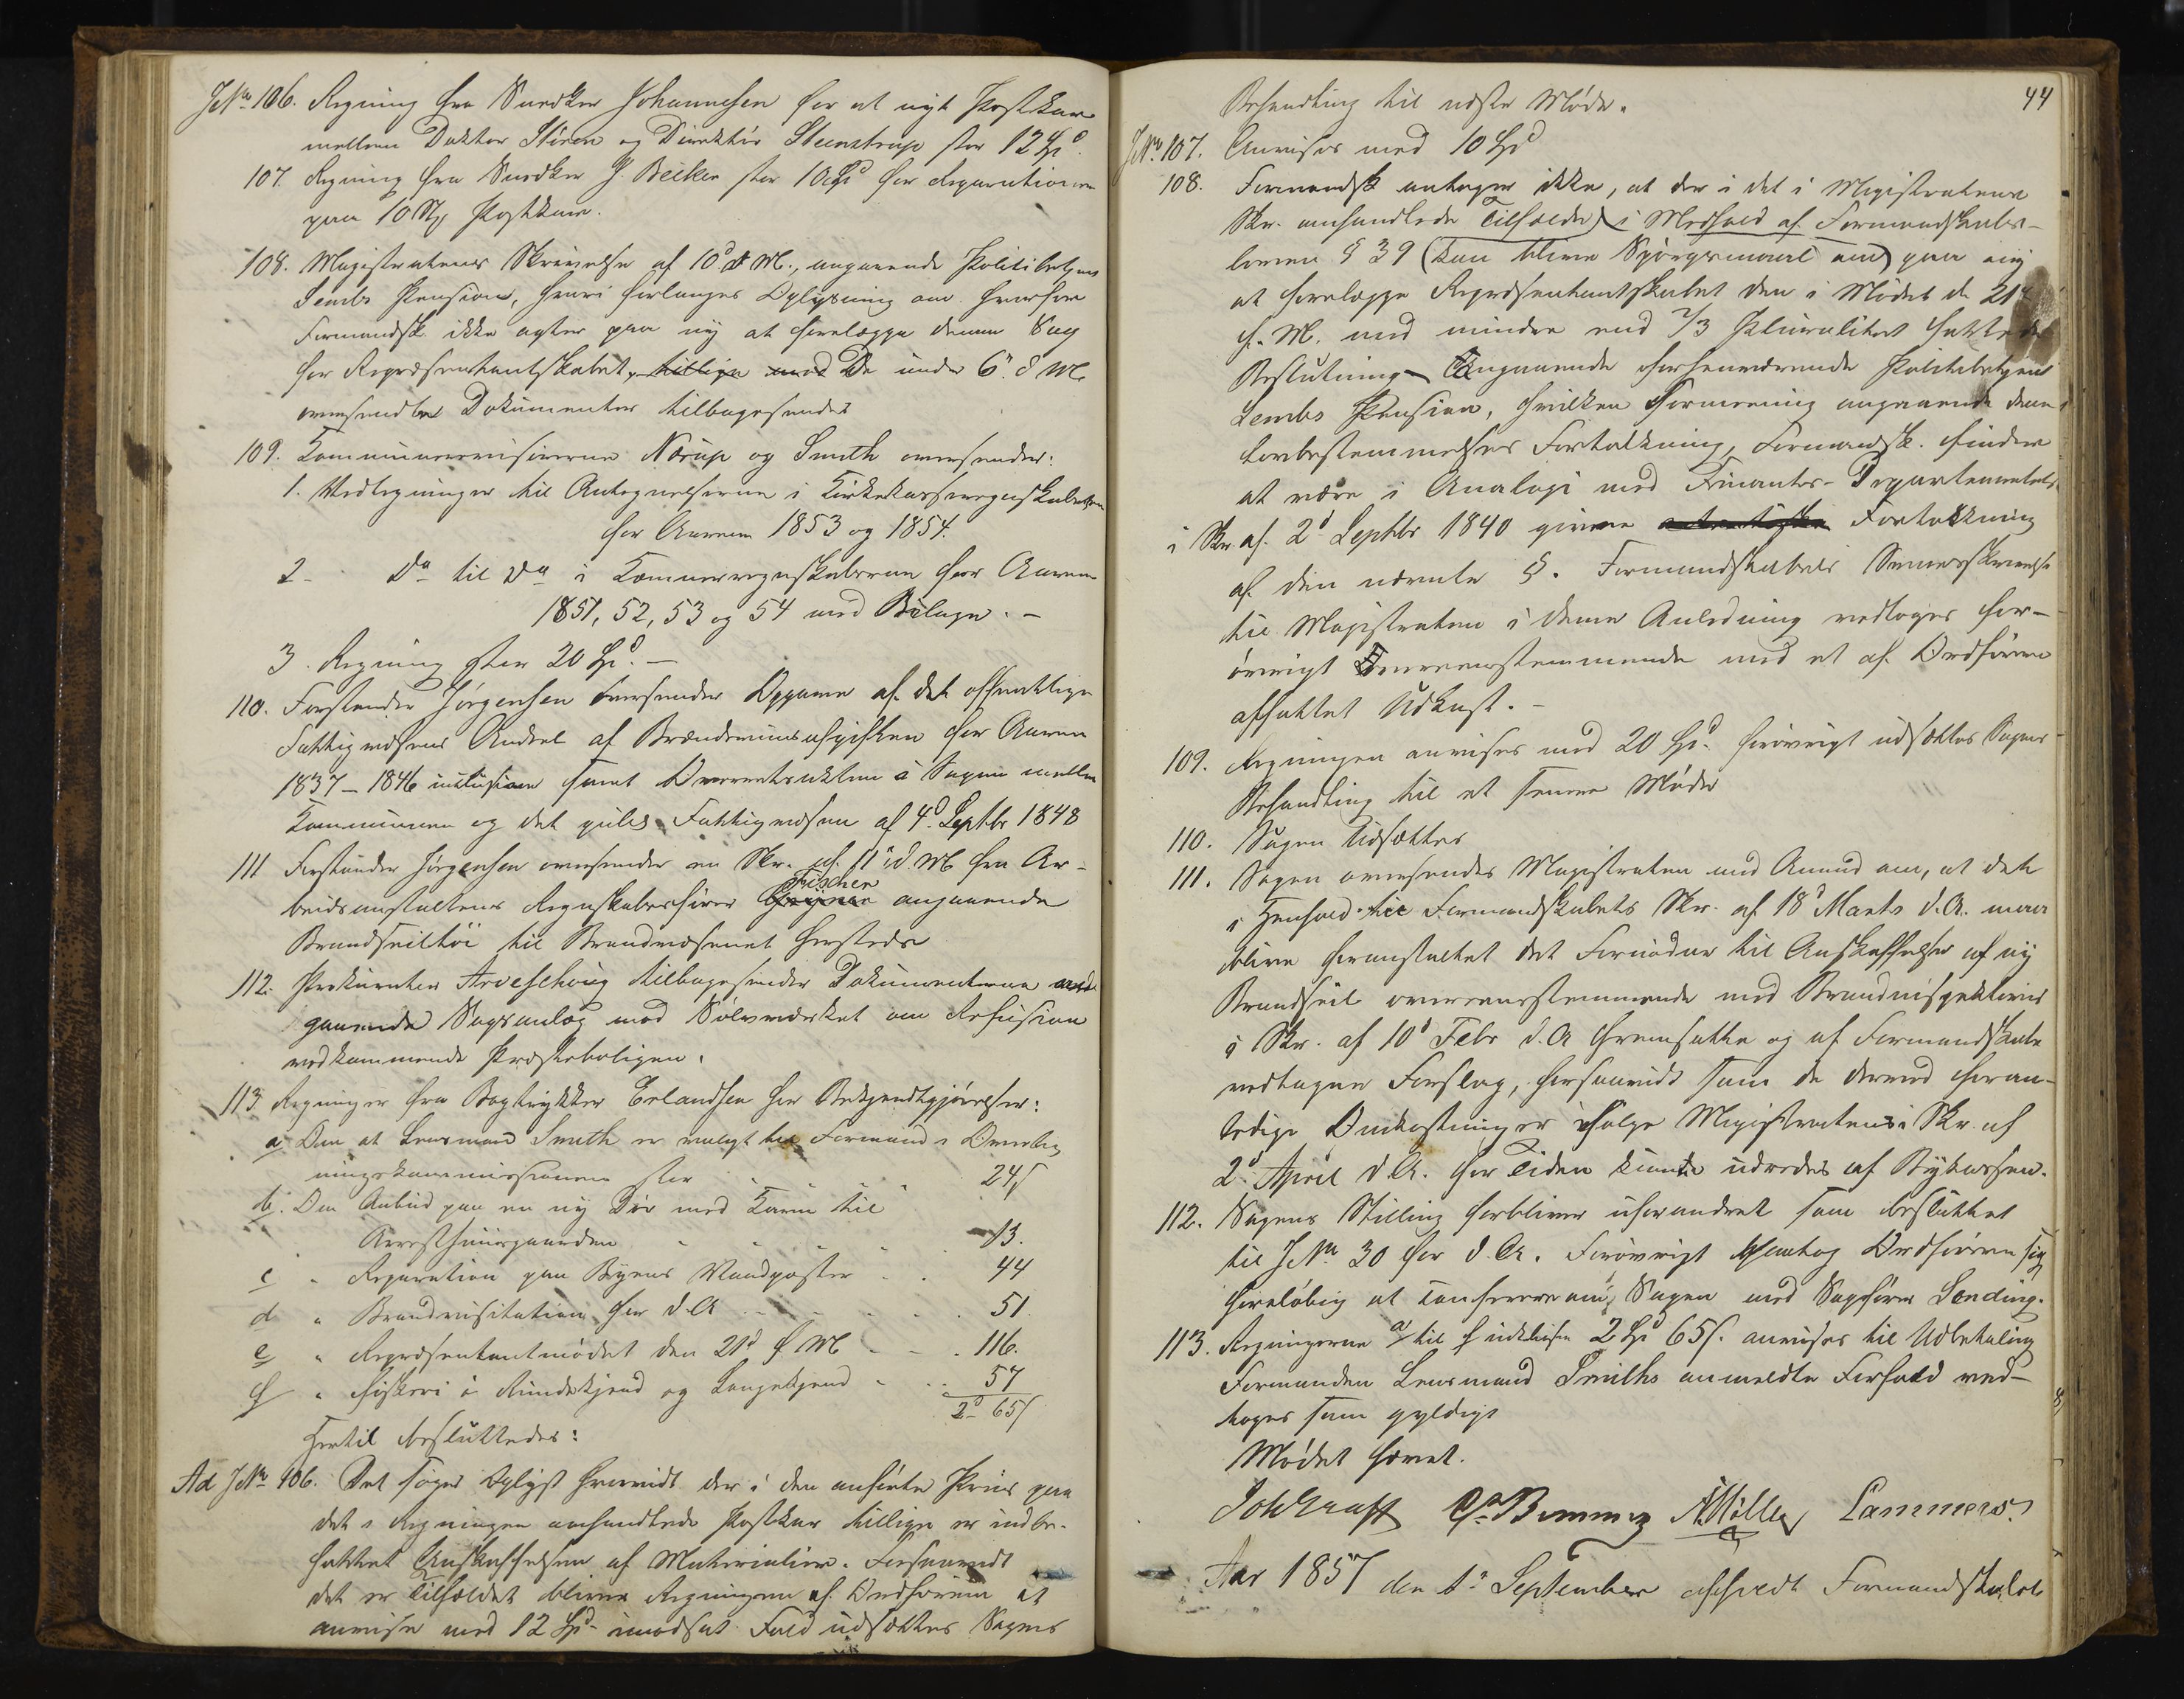 JNo 106. Regning fra Snedker Johannesen for et nyt Postkar
mellem Doktor Stören og Direktör Steenstrup stor 12 Spd.
107. Regning fra Snedker J. Becker stor 10 Spd for Reparationer
paa 10 St Postkar.
108. Magistratens Skrivelse af 10d d. M., angaaende Politibetjent
Lembs Pension, hvori forlanges Oplysning om hvorfor
Formandsk. ikke agter paa ny at forelægge denne Sag
for Repræsentantskabet, tillige med De under 6te d M.
oversendte Dokumenter tilbagesendes
109. Kommunerevisorerne Nørup og Smith oversender:
1. Vedtegninger til Antegnelserne i Kirkekasseregnskaberne
for Aarene 1853 og 1854.
2 - Do til Do i Kæmnerregnskaberne for Aarene
1851, 52, 53 og 54 med Bilage. -
3. Regning stor 20 Spd. -
110. Forstander Jørgensen oversender Opgave af det offentlige
Fattigvæsens Andel af Brændevinsafgiften for Aarene
1837 - 1846 inklusive samt Overretsakten i Sagen mellem
Kommunen og det gules Fattigvæsen af 4d Septbr 1848
111 Forstander Jørgensen oversender en Skr. af 11te d. M. fra Ar-
beidsanstaltens Regnskabsfører Fischer angaaende
Brandseiltøi til Brandvæsenet hersteds
112. Prokurator Arveschoug tilbagesender Dokumenterne an-
gaaende Sagsanlæg mod Sølvværket om Refusion
vedkommende Præsteboligen.
113 Regninger fra Bogtrykker Erlandsen for Bekjendtgjørelser:
a. Om at Lensmand Smith er valgt til Formand i Overlig-
ningskommissionen stor 24 s
b. Om Anbud paa en ny Dør med Karm til
Arresthuusgaarden - 13.
c " Reparation paa Byens Vandposter 44
d " Brandvisitation for d. A 51.
e " Repræsentantmødet den 21d f M 116.
f " Fiskeri i Kunstkjend og Langekjend 57
2d 65 s
Hertil besluttedes:
Ad JNo 106. Det søges oplyst hvorvidt der i den anførte Priis paa
det i Regningen omhandlede Postkar tillige er indbe-
fattet Anskaffelsen af Materialier. Forsaavidt
det er Tilfældet bliver Regningen af Ordføreren at
anvise med 12 Spd - i modsat Fald udsættes Sagens
44
Behandling til næste Møde.
JNo 107. Anvises med 10 Spd
108. Formandsk antager ikke, at der i det i Magistratens
Skr. omhandlede Tilfælde) i Medhold af Formandskabs-
lovens § 39 (kan blive Spørgsmaal om) paa ny
at forelægge Repræsentantskabet den i Mødet d. 21d
f. M. med mindre end 2/3 Pluralitet fattede
Beslutning Angaaende forhenværende Politibetjent
Lembs Pension, hvilken Formening angaaende denne
Lovbestemmelses Fortolkning, Formandsk. finder
at være i Analogi med Finants-Departementets
i Skr. af 2d Septbr 1840 givne Fortolkning
af den nævnte §. Formandskabets Svarskrivelse
til Magistraten i denne Anledning vedtoges for-
øvrigt Overeensstemmende med et af Ordføreren
affattet Udkast. -
109. Regningen anvises med 20 Spd. Forøvrigt udsættes Sagens
Behandling til et senere Møde
110. Sagen udsættes
111. Sagen oversendes Magistraten med Anmod om, at det
i Henhold til Formandskabets Skr. af 18d Marts d. A. maa
blive foranstaltet det Fornødne til Anskaffelse af ny
Brandseil overeensstemmende med Brandinspektørens
i Skr. af 10d Febr d. A fremsatte og af Formandskabet
vedtagne Forslag, forsaavidt som de dermed foran-
ledige Omkostninger ifølge Magistratens Skr. af
2d April d. A. for Tiden kunde udredes af Bykassen.
112. Sagens Stilling forbliver uforandret som besluttet
til JNo 30 for d. A. Forøvrigt paatog Ordføreren sig
foreløbig at konferere om Sagen med Sagfører Sending.
113. Regningerne a til f inklusive 2 Spd 65 s. anvises til Udbetaling
Formanden Lensmand Smiths anmeldte Forfald ved-
toges som gyldigt
Mødet hævet.
Joh Graff C. Bemmz N. Møller Lammers.
Aar 1857 den 1te September afholdt Formandskabet